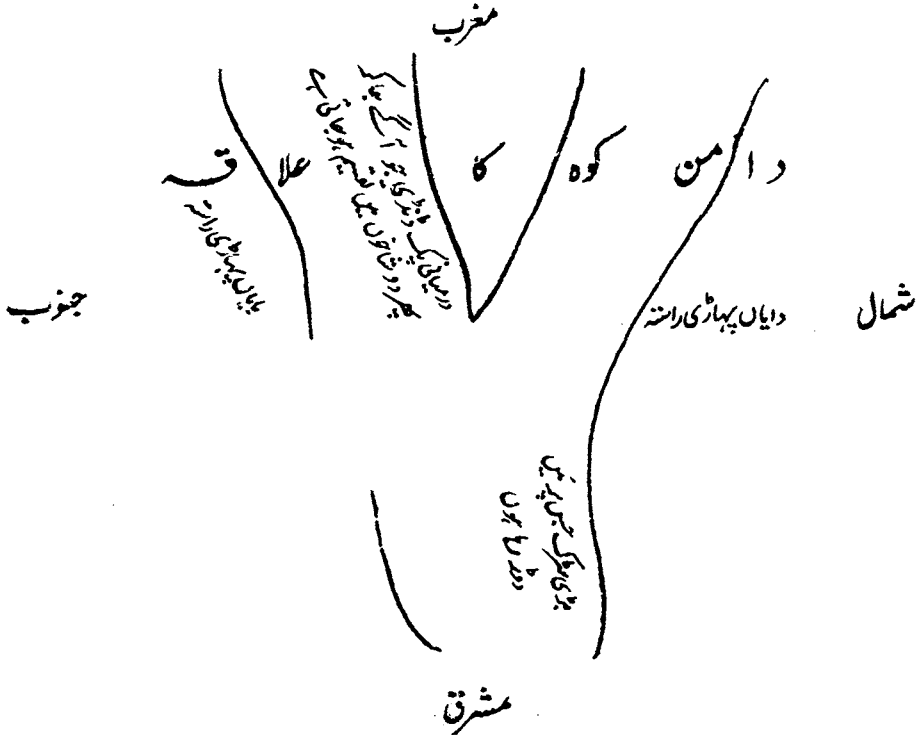 مغرب
دامن کوہ کا علاقہ
درمیانی پگ ڈنڈی جو آگے جا کر
پھر دو شاخوں میں تقسیم ہو جاتی ہے
بایاں پہاڑی راستہ
شمال
دایاں پہاڑی راستہ
جنوب
بڑی سڑک جس پر میں
دوڑ رہا ہوں
مشرق